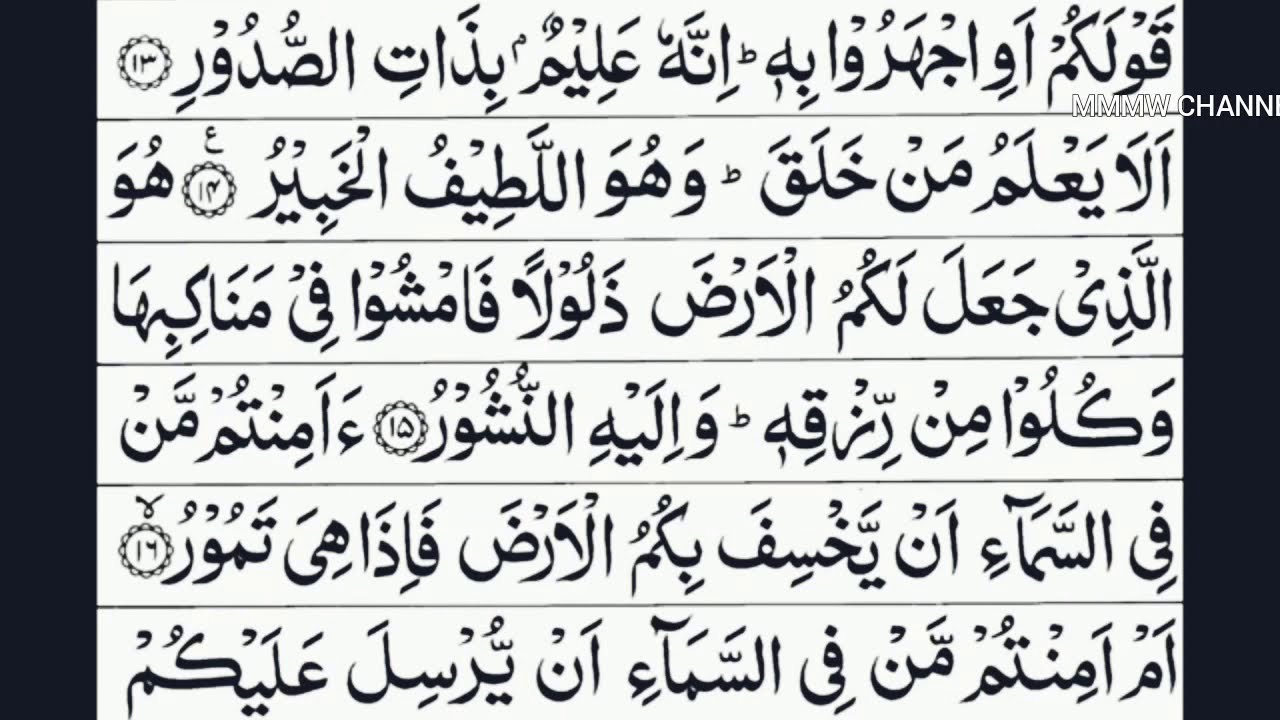 قَوْلَكُمْ اَوِ اجْهَرُوْا بِهٖ ؕ اِنَّهٗ عَلِيْمٌۢ بِذَاتِ الصُّدُوْرِ ﴿۱۳﴾
MMMW CHANNE
اَلَا يَعْلَمُ مَنْ خَلَقَ ؕ وَهُوَ اللَّطِيْفُ الْخَبِيْرُ ﴿۱۴﴾ ع هُوَ
الَّذِىْ جَعَلَ لَكُمُ الْاَرْضَ ذَلُوْلًا فَامْشُوْا فِىْ مَنَاكِبِهَا
وَكُلُوْا مِنْ رِّزْقِهٖ ؕ وَاِلَيْهِ النُّشُوْرُ ﴿۱۵﴾ ءَاَمِنْتُمْ مَّنْ
فِى السَّمَآءِ اَنْ يَّخْسِفَ بِكُمُ الْاَرْضَ فَاِذَا هِىَ تَمُوْرُ ﴿۱۶﴾ ۙ
اَمْ اَمِنْتُمْ مَّنْ فِى السَّمَآءِ اَنْ يُّرْسِلَ عَلَيْكُمْ